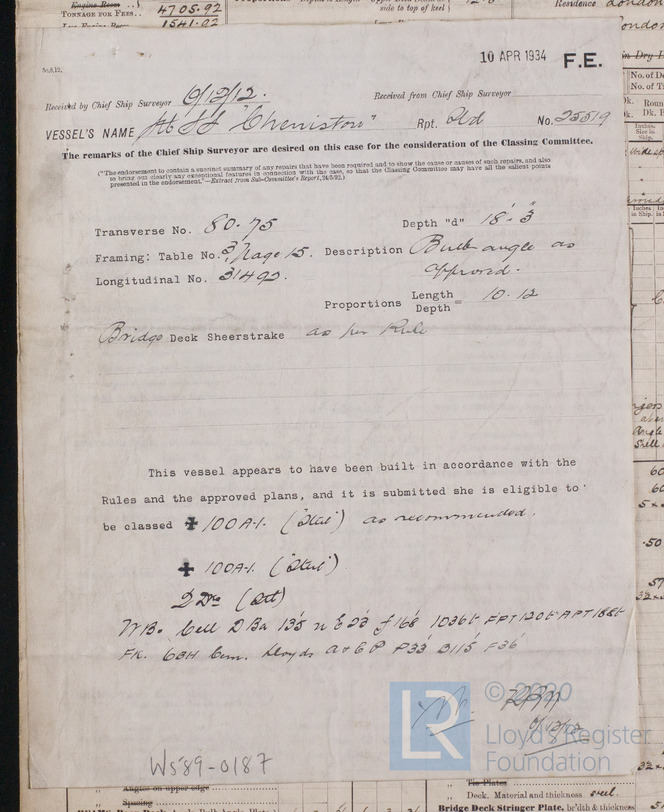 Engine Room
TONNAGE FOR FEES.. 4705.92
1541.02
side to top of keel
Residence London
10 APR 1934 F.E.
5c,8,12.
Received by Chief Ship Surveyor 6/12/12. Received from Chief Ship Surveyor
VESSEL'S NAME "Cheniston" Rpt. No. 25519
The remarks of the Chief Ship Surveyor are desired on this case for the consideration of the Classing Committee.
("The endorsement to contain a succinct summary of any repairs that have been required and to show the cause or causes of such repairs, and also
to bring out clearly any exceptional features in connection with the case, so that the Classing Committee may have all the salient points
presented in the endorsement."—Extract from Sub-Committee's Report, 24/5/92.)
Transverse No. 80.75 Depth "d" 18'.3"
Framing: Table No. 3, Page 15. Description Bulb angle as
approved.
Longitudinal No. 31492.
Proportions Length
Depth = 10.12
Bridge Deck Sheerstrake as per Rule
This vessel appears to have been built in accordance with the
Rules and the approved plans, and it is submitted she is eligible to
be classed ✠ 100A-1. (Steel) as recommended.
✠ 100A-1. (Steel)
2 Dks (Stl)
WB. Cell D Ba 135' u E 23' f 168' 1036t FPT 120t APT 188t
FK. 6BH Cem. Lloyds A & CP P33' B115' F36'
LR
© 2020
Lloyd's Register
Foundation
W589-0187
Angles on upper edge
Spacing
Tie Plates
Deck. Material and thickness steel.
Bridge Deck Stringer Plate, br'dth & thickness